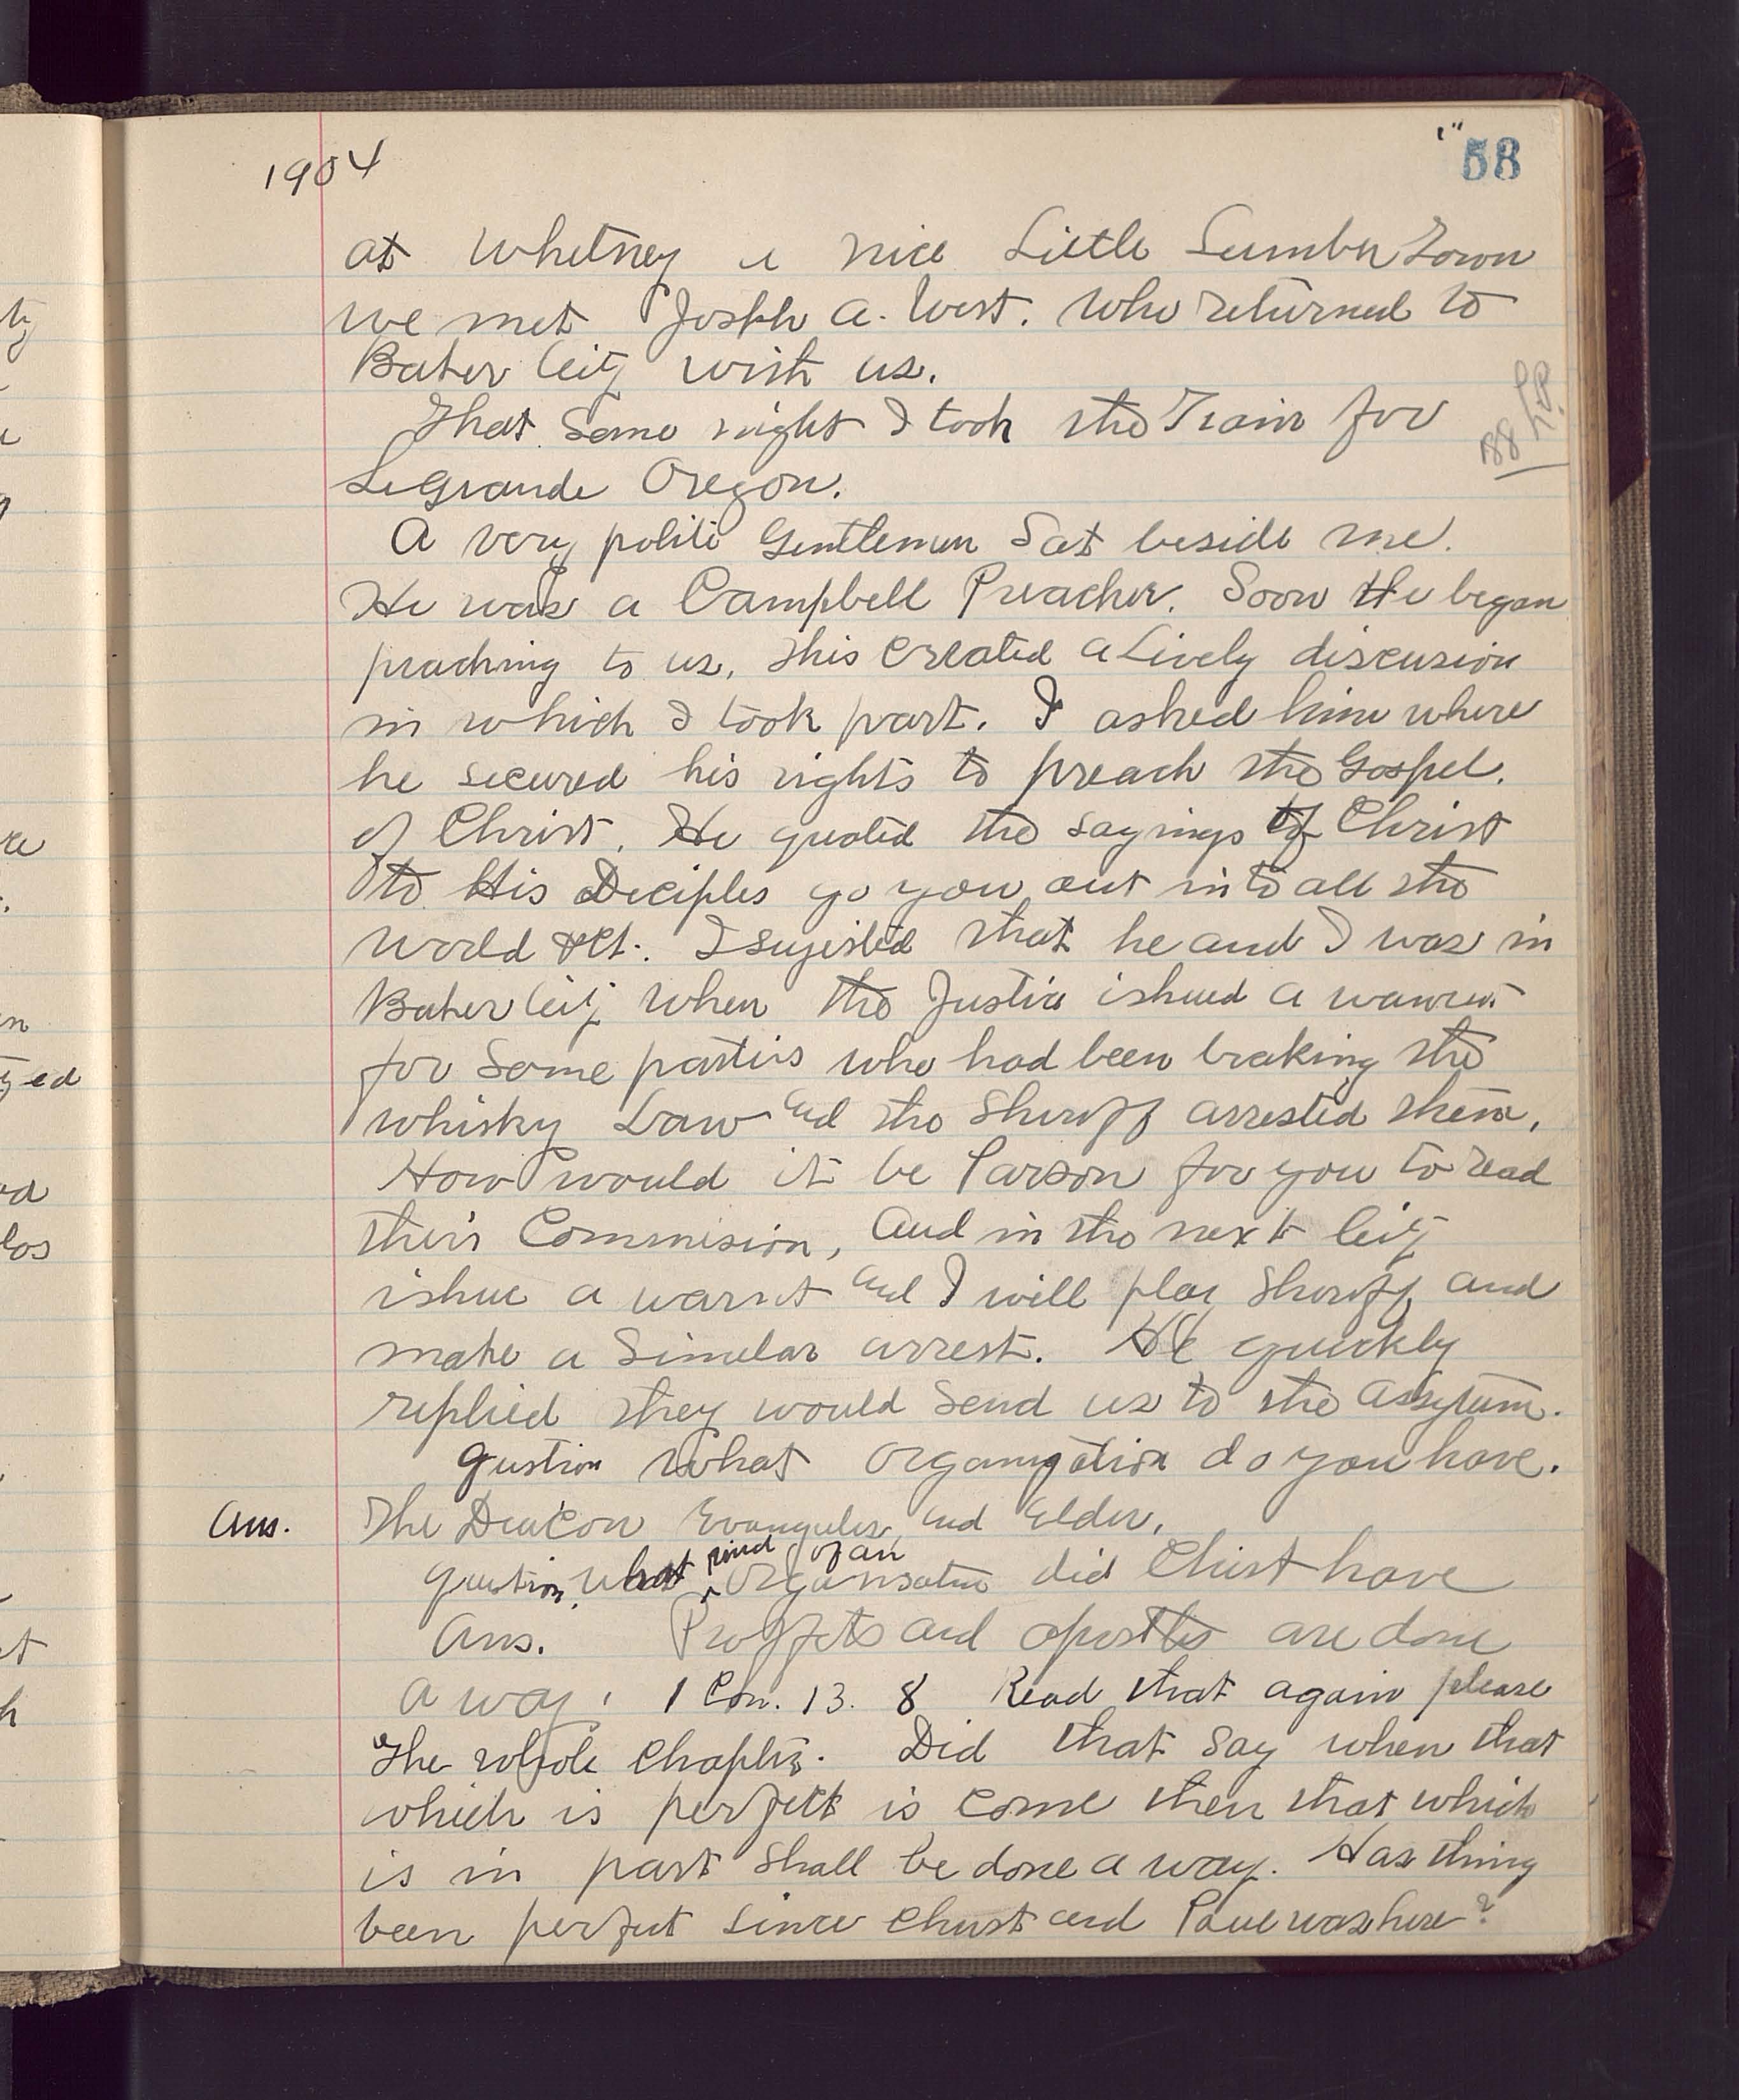 1904
58
at Whitney a nice Little Lumber Town
we met Joseph A. West. who returned to
Baker City with us.
That same night I took the Train for
LeGrande Oregon.
88
A very polite Gentlemen Sat beside me.
He was a Campbell Preacher. Soon He began
preaching to us, this created a Lively discusion
in which I took part. I asked him where
he secured his rights to preach the Gospel.
of Christ. He quoted the sayings of Christ
to His Deciples go you out into all the
world &ct. I sugisted that he and I was in
Baker City when the Justice ishued a warrent
for Some parties who had been braking the
whisky Law and the Sheriff arrested them,
How would it be Parson for you to read
their Commision, And in the next City
ishue a warnt and I will play Sheriff and
make a Simelar arrest. He quickly
replied they would Send us to the Assylum.
qustion what organization do you have.
Ans. The Deacon Evangelis and Elder.
question, what kind of an Organisation did Christ have
Ans. Proffets and apostles are done
away, 1 Cor. 13. 8 Read that again please
The whole Chapter. Did that Say when that
which is perfect is come then that which
is in part Shall be done away. Has thing
been perfect Since Christ and Paul was here?